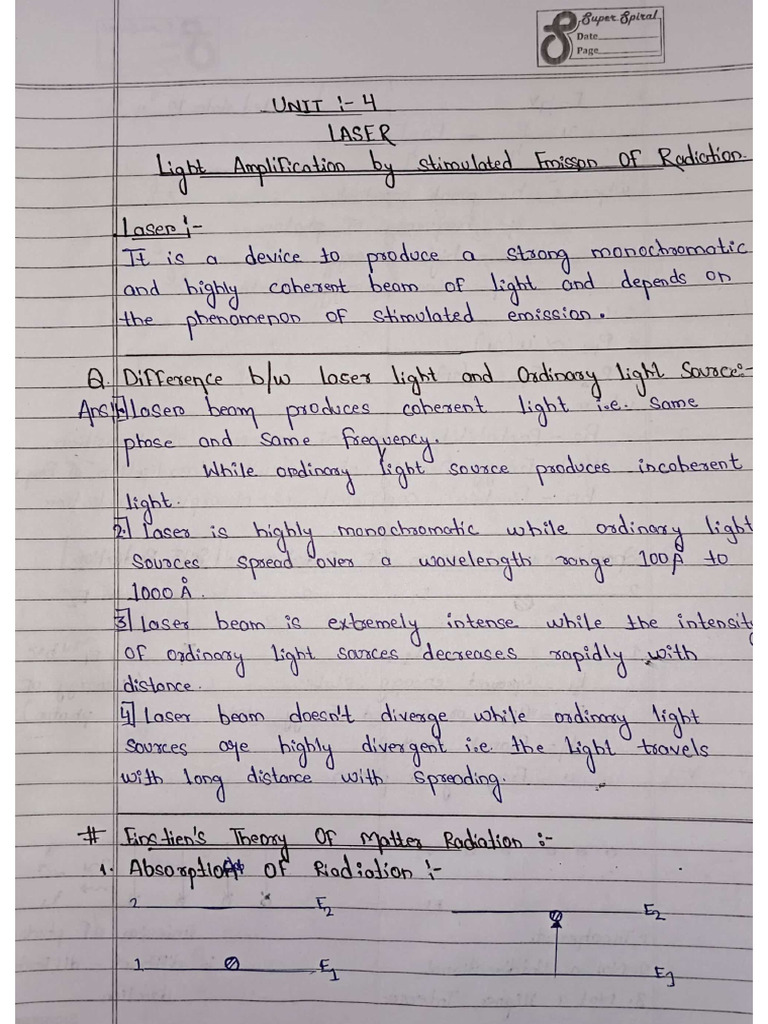 Super Spiral
Date
Page
UNIT :- 4
LASER
Light Amplification by Stimulated Emisson Of Radiation.
Laser :-
It is a device to produce a strong monochromatic
and highly coherent beam of light and depends on
the phenomenon of stimulated emission.
Q. Difference b/w laser light and Ordinary light Source:-
Ans 1. Laser beam produces coherent light i.e. same
phase and same frequency.
While ordinary light source produces incoherent
light.
2. Laser is highly monochromatic while ordinary light
sources spread over a wavelength range 100Å to
1000 Å.
3 Laser beam is extremely intense while the intensity
of ordinary light sources decreases rapidly with
distance.
4 Laser beam doesn't diverge while ordinary light
sources are highly divergent i.e. the light travels
with long distance with spreading.
# Einstien's Theory Of Matter Radiation :-
1. Absorption Of Radiation :-
2 E2 E2
1 E1 E1